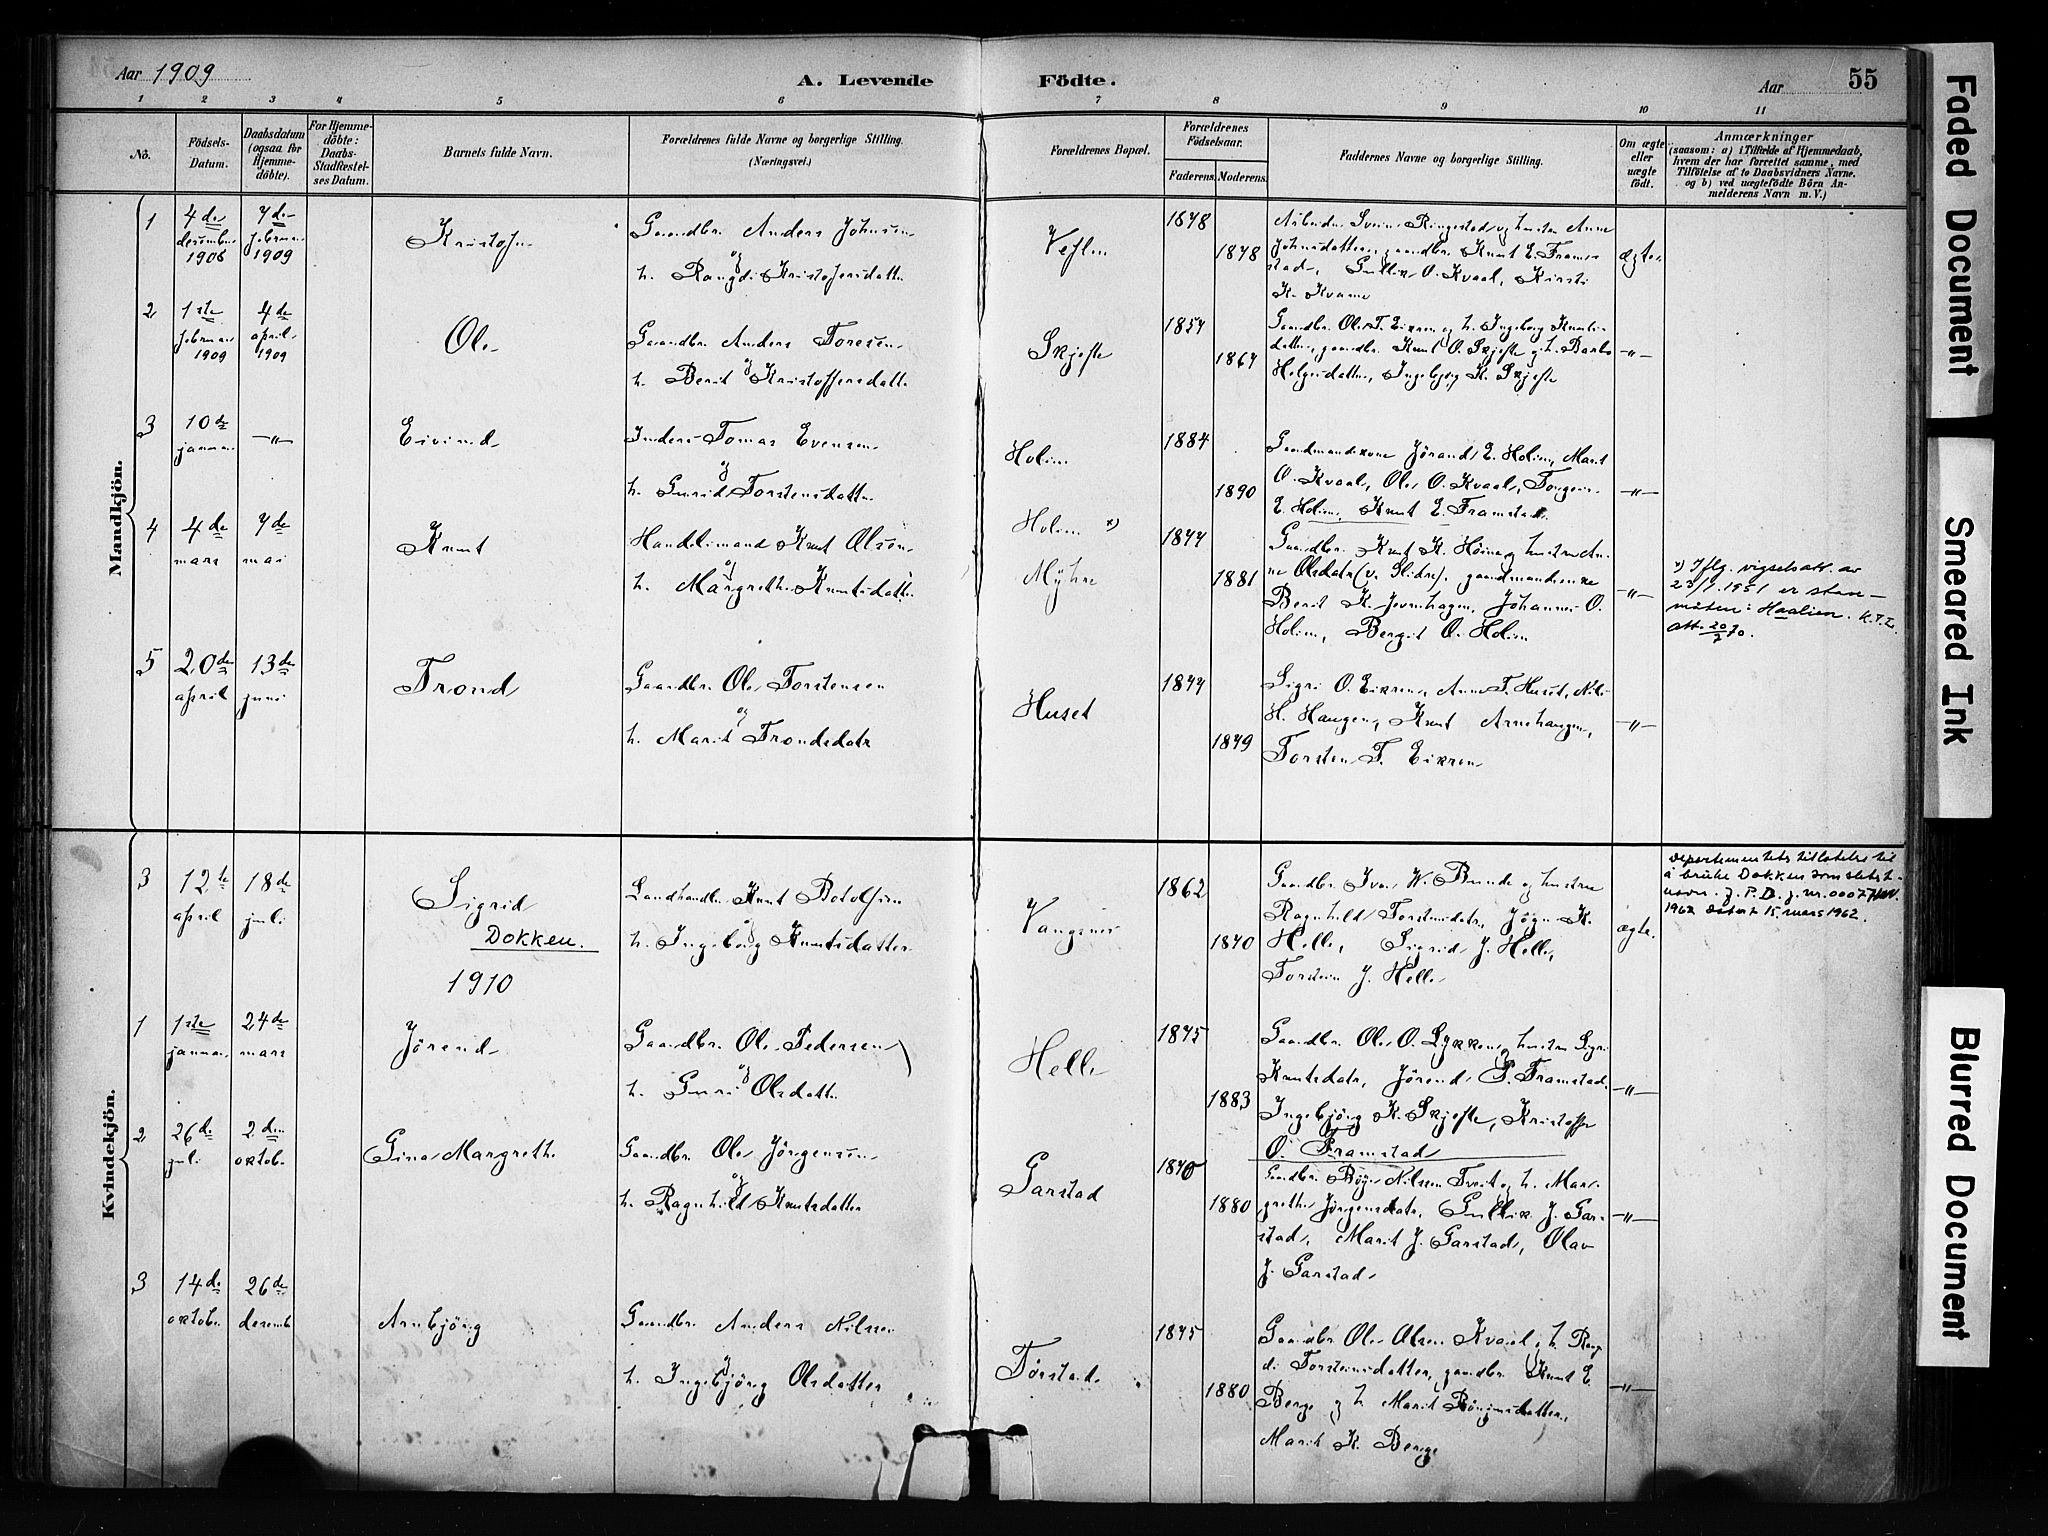 Aar 1909
A. Levende
Födte.
Aar
55
1 2 3 4 5 6 7 8 9 10 11
No.
Födsels-
Datum.
Daabsdatum
(ogsaa for
Hjemme-
döbte).
For Hjemme-
döbte:
Daabs-
Stadfæstel-
ses Datum.
Barnets fulde Navn.
Forældrenes fulde Navne og borgerlige Stilling.
(Næringsvei.)
Forældrenes Bopæl.
Forældrenes
Födselsaar.
Faderens. Moderens.
Faddernes Navne og borgerlige Stilling.
Om ægte
eller
uægte
födt.
Anmærkninger
(saasom: a) i Tilfælde af Hjemmedaab,
hvem der har forrettet samme, med
Tilföielse af to Daabsvidners Navne,
og b) ved uægtefödte Börn An-
melderens Navn m. V.)
Mandkjön.
1
4de
desember
1908
7de
februar
1909
Kristofer
Gaardbr. Anders Johnsen
og
h. Rangdi Kristofersdatter
1878
1878
Johnsdatter, gaardbr. Knut E. Fram-
stad, Gullik O. Kvaal, Kirsti
K. Kvame
ægte
2
1ste
februar
1909
4de
april
1909
Ole
Gaardbr. Anders Toresen
og
h. Berit Kristoffersdatter
Skjefte
1857
1867
Gaardbr. Ole T. Eikren og h. Ingeborg Knuts-
datter, gaardbr. Knut O. Skjefte og h. Barbo
Helgesdatter, Ingebjörg K. Skjefte
-"-
3
10de
januar
-"-
Eivind
Inders Tomas Evensen
og
h. Gurid Torstensdatter
Holien
1884
1890
Gaardmandskone Jörand E. Holien, Marit
O. Kvaal, Ole O. Kvaal, Torgeir
E. Holien, Knut E. Framstad
-"-
4
4de
mars
7de
mai
Knut
Handelsmand Knut Olsen
og
h. Margrethe Knutsdatter
Holien x)
Myhre
1877
1881
Gaardbr. Knut K. Höine og hustru An-
ne Olsdatr (v. Slidre), gaardmandsenke
Berit K. Jernhagen, Johannes O.
Holien, Bergit O. Holien
-"-
x) Iflg. vigselsatt. av
23/7.1951 er skrive-
måten: Haalien. K.T.L.
att. 20/7 70.
5
20de
april
13de
juni
Trond
Gaardbr. Ole Torstensen
og
h. Marit Trondsdatr
Huset
1877
1879
Sigri O. Eikren, Anne T. Huset, Nils
H. Haugen, Knut Arnehaugen,
Torsten T. Eikren
-"-
Kvindekjön.
3
12te
april
18de
juli
Sigrid
Dokken.
Landhandler Knut Botolfsen
og
h. Ingeborg Knutsdatter
Vangsnes
1862
1870
Gaardbr. Ivar W. Bunde og hustru
Ragnhild Torstensdatr, Jögen K.
Helle, Sigrid J. Helle,
Torstein J. Helle
ægte.
Departementets tillatelse til
å bruke Dokken som slekts-
navn. J. P. D. j. nr. 0007
1962 datert 15. mars 1962.
1910
1
1ste
januar
24de
mars
Jörand
Gaardbr. Ole Pedersen
og
h. Guri Olsdatter
Helle
1875
1883
Gaardbr. Ole O. Lykken og hustru Sigri
Knutsdatr, Jörend P. Framstad,
Ingebjörg K. Skjefte, Kristoffer
O. Framstad
-"-
2
26de
juli
2den
oktob.
Gina Margrethe
Gaardbr. Ole Jörgensen
og
h. Ragnhild Knutsdatter
Garstad
1870
1880
Gaardbr. Böye Nilssen Tveit og h. Mar-
grethe Jörgensdatr, Gullik J. Gar-
stad, Marit J. Garstad, Olav
J. Garstad
-"-
3
14de
oktober
26de
desemb
Arnbjörg
Gaardbr. Anders Nilssen
og
h. Ingebjörg Olsdatter
Törstad
1875
1880
Gaardbr. Ole Olsen Kvaal og h. Rang-
di Torsteinsdatter, gaardbr. Knut E.
Berge og h. Marit
Marit K. Berge
-"-
Faded Document
Smeared Ink
Blurred Document